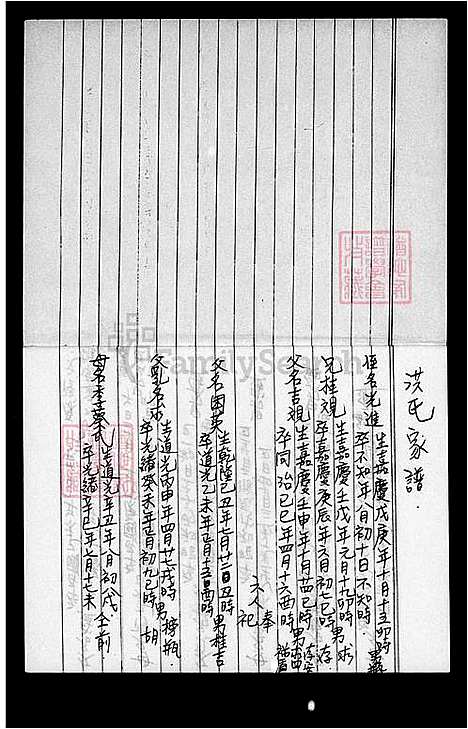 洪氏家譜
侄名光進 生嘉慶戊庚年十月十五卯時
卒不知年八月初十日不知時
兄桂覌 生嘉慶壬戌年元月十九卯時 男 求
卒嘉慶庚辰年六月初七巳時 存
父名吉覌 生嘉慶壬申年十月廿四巳時 男
卒同治己巳年四月十六酉時
六人奉祀
父名困英 生乾隆己丑年二月廿二日丑時 男 桂 吉
卒道光乙未年正月十五日酉時
父乳名求 生道光丙申年四月廿七戌時 男 榜 瓶
卒光緒癸未年正月初九巳時 胡
母名李蔡氏 生道光辛丑年八月初八戌 仝前
卒光緒辛巳年七月十七未
FamilySearch